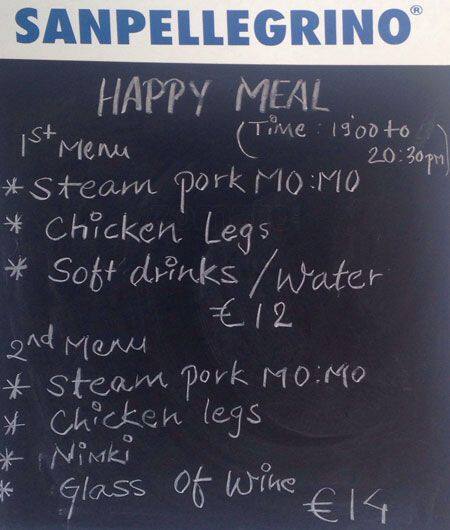 SANPELLEGRINO®
HAPPY MEAL
1st Menu (Time: 19'00 to 20:30pm)
* Steam pork MO:MO
* Chicken Legs
* Soft drinks / Water
€12
2nd Menu
* Steam pork MO:MO
* Chicken legs
* Nimki
* Glass of Wine
€14